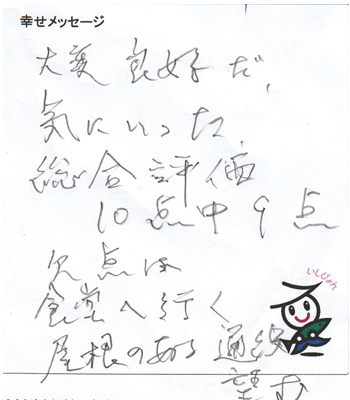 幸せメッセージ
大変良好だ、
気にいった、
総合評価
10点中9点
欠点は
食堂へ行く
屋根のある通路
望む